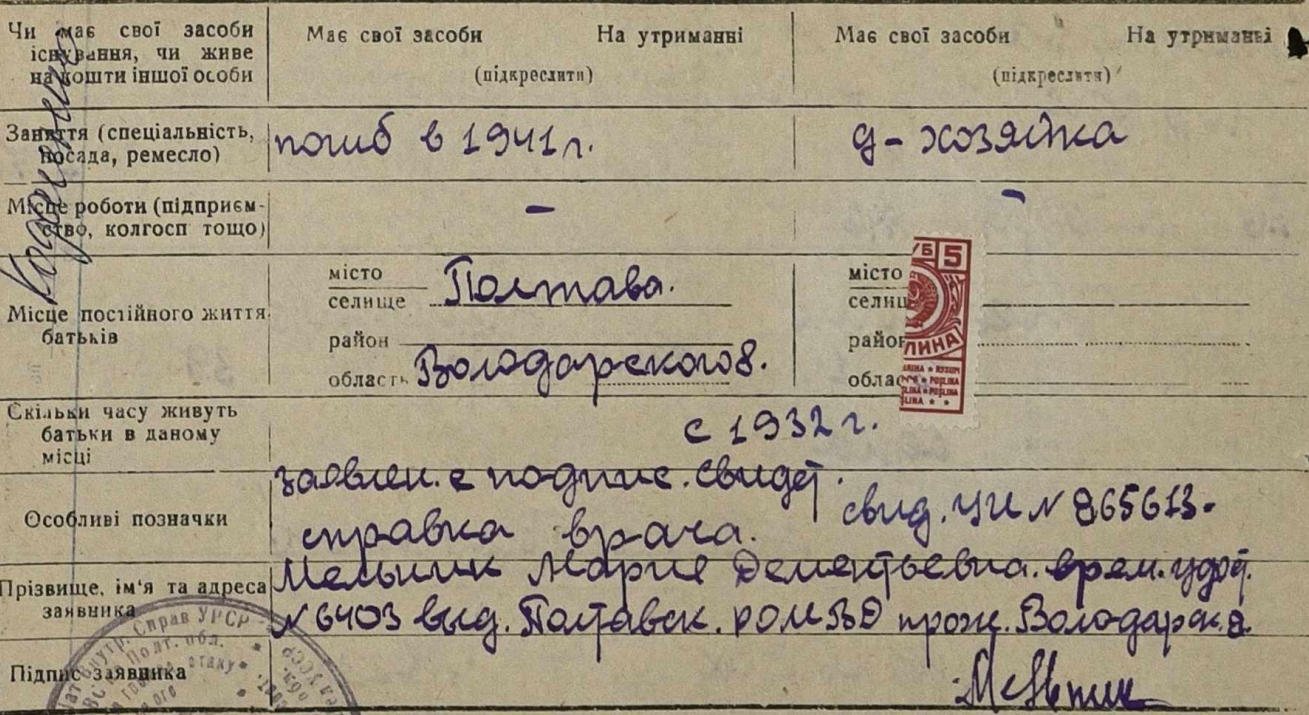 Чи має свої засоби
існування, чи живе
на кошти іншої особи
Має свої засоби На утриманні
(підкреслити)
Має свої засоби На утриманні
(підкреслити)
Заняття (спеціальність,
посада, ремесло)
погиб в 1941 г.
д-хозяйка
Місце роботи (підприєм-
ство, колгосп тощо)
-
-
Місце постійного життя
батьків
місто
селище
Полтава.
район
область
Володарского 8.
місто
селищ
район
облас
УБ 5
ЛИНА
Скільки часу живуть
батьки в даному
місці
с 1932 г.
Особливі позначки
заявлен. с подпис. свидет.
справка врача.
свид. ЧИ № 865613.
Прізвище, ім'я та адреса
заявника
Мельник Мария Дементьевна. врем. удот.
№ 6403 выд. Полтавск. РОМВД прож. Володарск. 8.
Підпис заявника
Мельник
Внутр. Справ УРСР
Полт. обл.